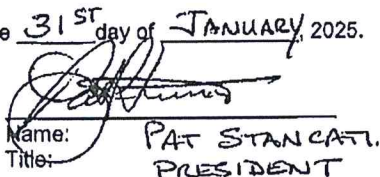 e 31ST day of JANUARY, 2025.
Name: PAT STANCATI.
Title: PRESIDENT